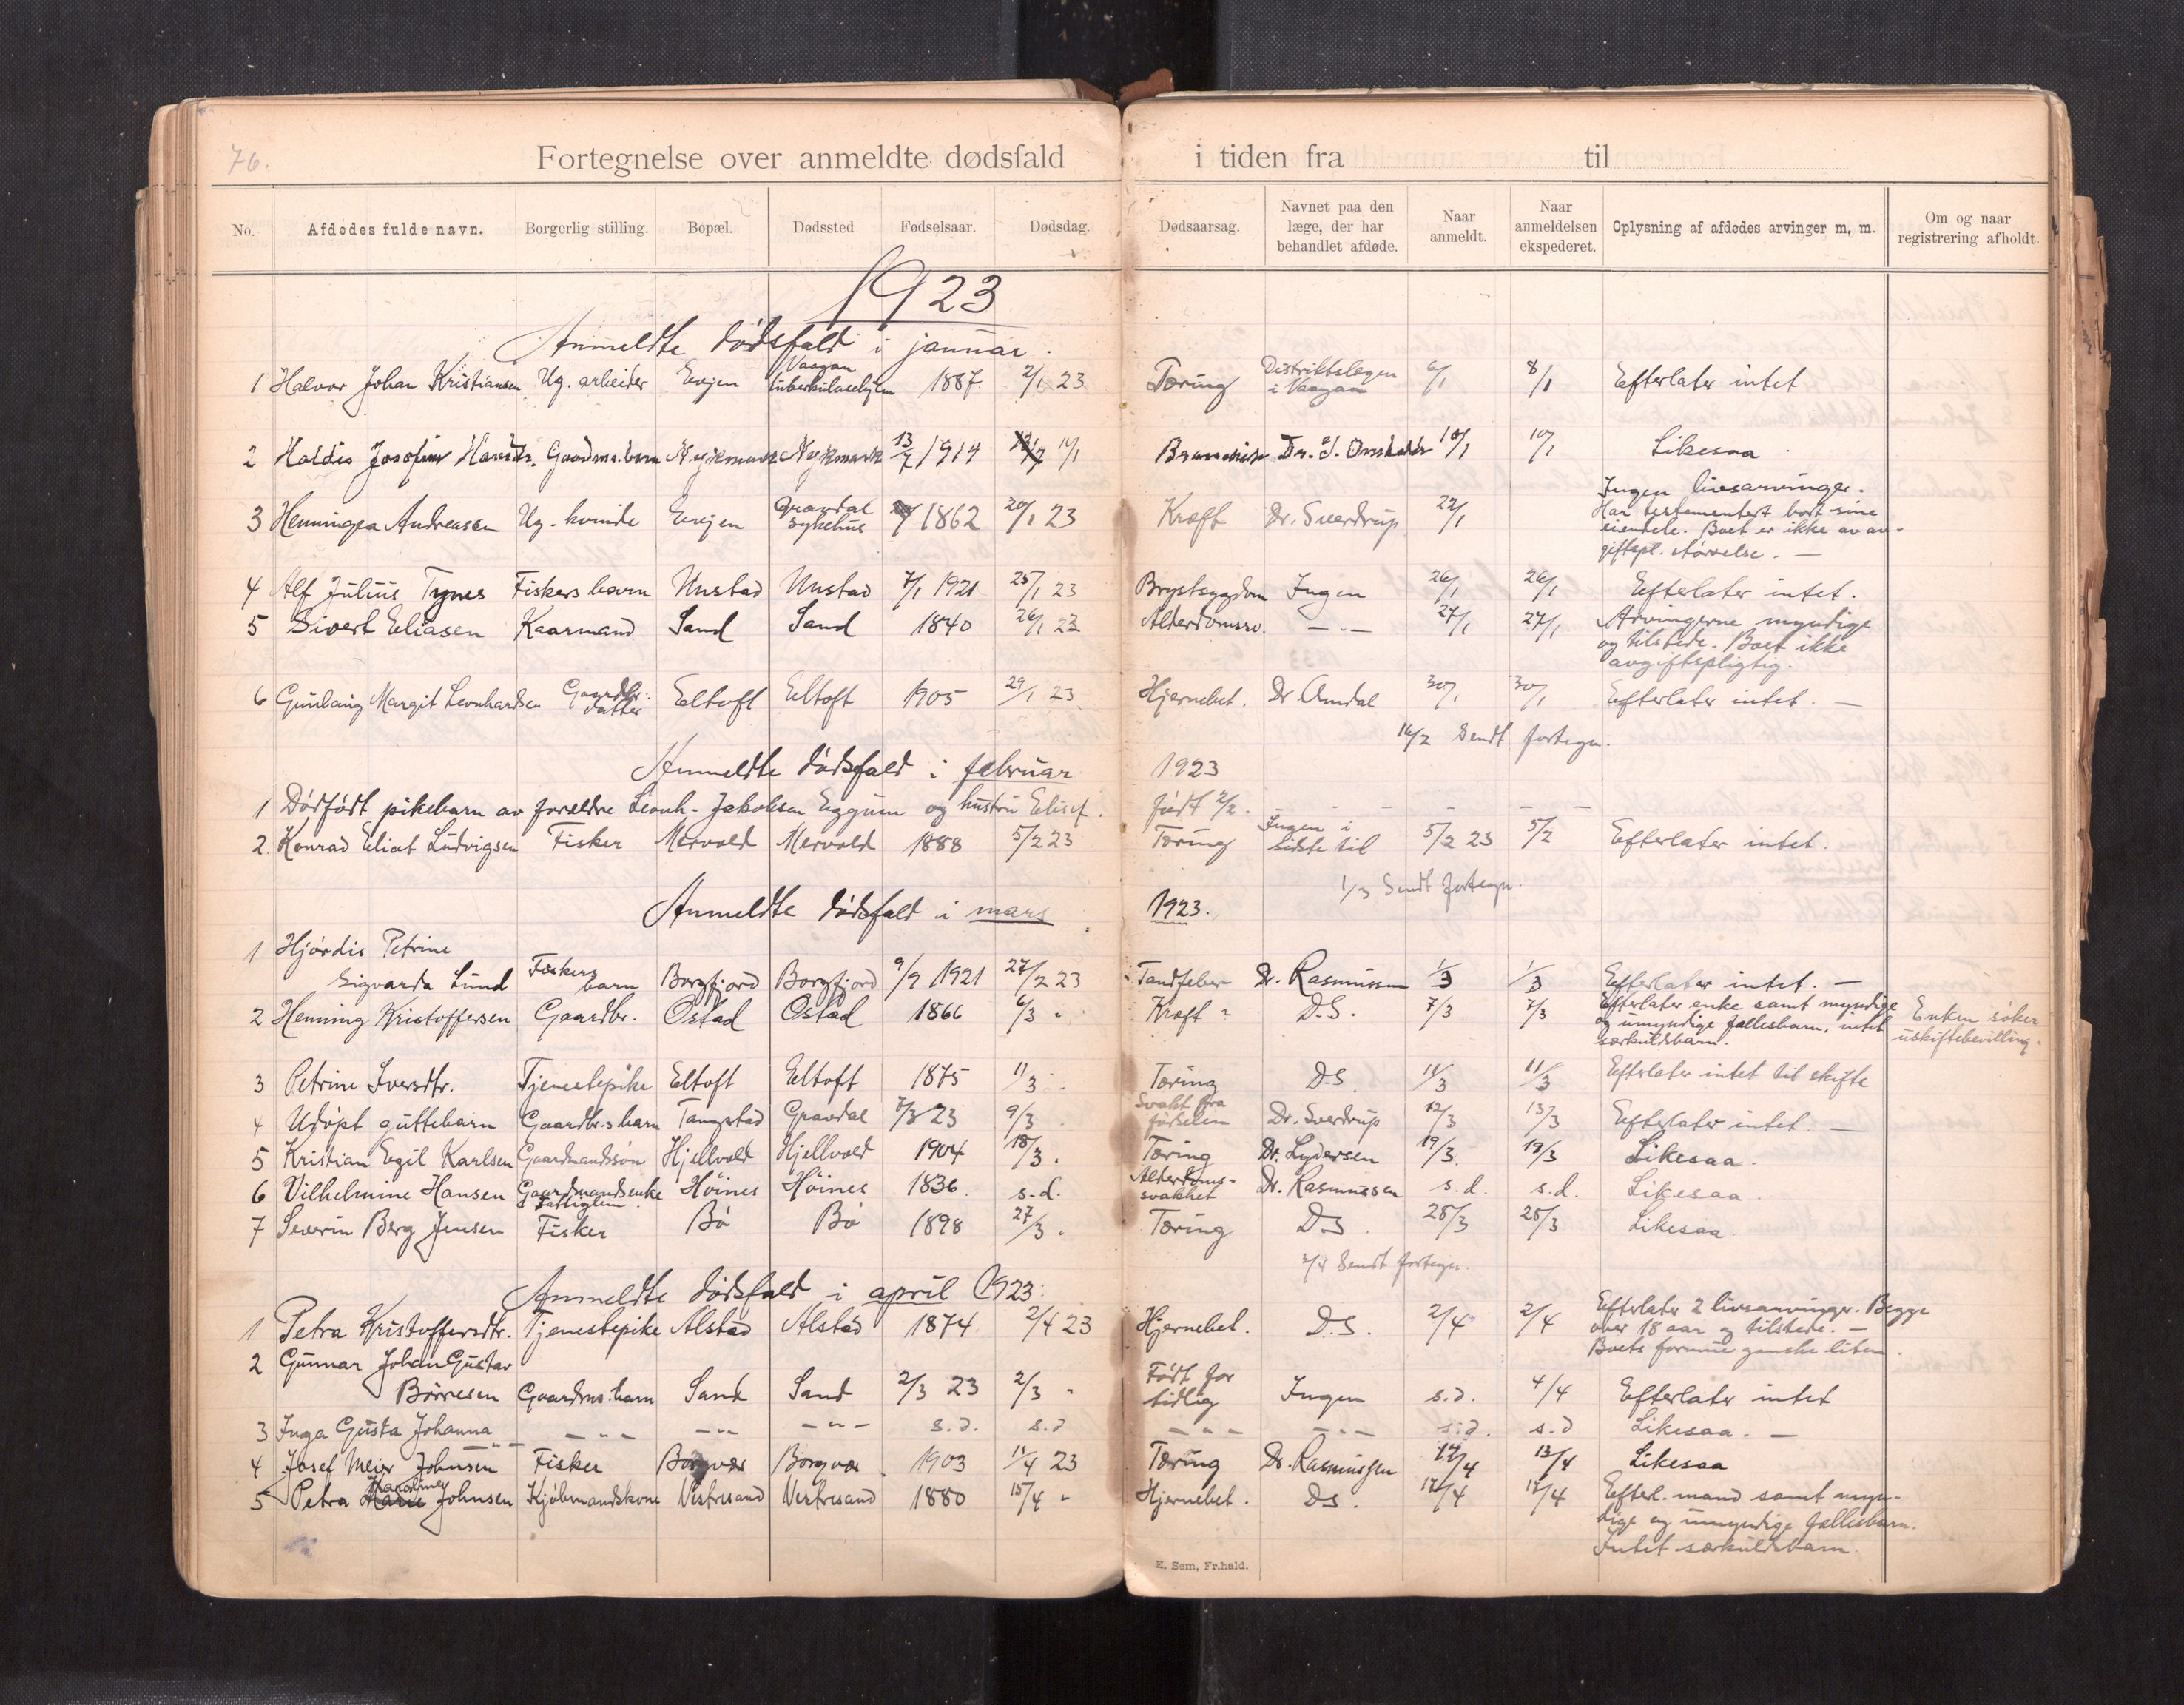 76.
Fortegnelse over anmeldte dødsfald i tiden fra til
No. Afdødes fulde navn. Borgerlig stilling. Bopæl. Dødssted Fødselsaar. Dødsdag. Dødsaarsag. Navnet paa den læge, der har behandlet afdøde. Naar anmeldt. Naar anmeldelsen ekspederet. Oplysning af afdødes arvinger m, m. Om og naar registrering afholdt.
1923
Anmeldte dødsfald i januar.
1 Halvor Johan Kristiansen Ug. arbeider Evejen Vaagan tuberkulosehjem 1887 2/1 23 Tæring Distriktslægen i Vaagan 6/1 8/1 Efterlater intet
2 Haldis Josefine Gaardm. barn 13/7 1914 11/1 Dr. 10/1 10/1 Likesaa
3 Henningea Andreassen Ug. kvinde Evejen Gravdal sykehus 1862 20/1 23 Kræft Dr. Sverdrup 22/1 Ingen livsarvinger.
Har testementert bort sine
eiendele. Boet er ikke av av-
giftspl. størrelse. —
4 Alf Julius Tynes Fiskers barn Unstad Unstad 7/1 1921 25/1 23 Brystsygdom Ingen 26/1 26/1 Efterlater intet.
5 Sivert Eliasen Kaarmand Sand Sand 1840 26/1 23 Alderdomssv. —"— 27/1 27/1 Arvingerne myndige
og tilstede. Boet ikke
avgiftspligtig.
6 Gunlaug Margit Leonhardsen Gaardbr. datter Eltoft Eltoft 1905 29/1 23 Hjernebet. Dr Amdal 30/1 30/1 Efterlater intet. —
16/2 Sendt fortegn.
Anmeldte dødsfald i februar 1923
1 Dødfødt pikebarn av forældre Leonh. Jakobsen Eggum og hustru Elisef. født 2/2. - - - - -
2. Konrad Eliot Ludvigsen Fisker Mervold Mervold 1888 5/2 23 Tæring Ingen i sidste til 5/2 23 5/2 Efterlater intet.
1/3 Sendt fortegn.
Anmeldte dødsfald i mars 1923.
1 Hjørdis Petrine
Sigvarda Lund Fiskers barn Borgfjord Borgfjord 9/9 1921 27/2 23 Tandfeber Dr. Rasmussen 1/3 1/3 Efterlater intet. —
2 Henning Kristoffersen Gaardbr. Ostad Ostad 1866 6/3 " Kræft D.S. 7/3 7/3 Efterlater enke samt myndige
og umyndige fællesbarn, intet
særkuldsbarn. Enken søker
uskiftebevilling.
3 Petrine Iversdtr. Tjenestepike Eltoft Eltoft 1875 11/3 Tæring D.S. 11/3 11/3 Efterlater intet til skifte
4 Udøpt guttebarn Gaardbr.s barn Tangstad Gravdal 7/3 23 9/3 Svakt fra fødselen Dr. Sverdrup 12/3 13/3 Efterlater intet. —
5 Kristian Egil Karlsen Gaardmandssøn Hjellvold Hjellvold 1904 18/3. Tæring Dr. Lydersen 19/3. 19/3 Likesaa.
6 Vilhelmine Hansen Gaardmandsenke Høines Høines 1836. s.d. Alderdoms- svakhet Dr. Rasmussen s.d. s.d. Likesaa.
7 Severin Berg Jensen Fisker Bø Bø 1898 27/3. Tæring D.S. 28/3 28/3 Likesaa.
3/4 Sendt fortegn.
Anmeldte dødsfald i april 1923.
1 Petra Kristoffersdtr. Tjenestepike Alstad Alstad 1874 2/4 23 Hjernebet. D.S. 2/4 2/4 Efterlater 2 livsarvinger. Begge
over 18 aar og tilstede. —
Boets formue ganske liten.
2 Gunnar Johan Gustav
Børresen Gaardms. barn Sand Sand 2/3 23 2/3 " Født for tidlig Ingen s.d. 4/4 Efterlater intet
3 Inga Gusta Johanna —"— —"— —"— —"— s.d. s.d —"— —"— s.d. s.d Likesaa. —
4 Josef Meier Johnsen Fisker Borgvær Borgvær 1903 11/4 23 Tæring Dr. Rasmussen 12/4 13/4 Likesaa
5 Petra Johnsen Kjøbmandskone Vestresand Vestresand 1880 15/4 " Hjernebet. DS. 17/4 17/4 Efterl. mand samt myn-
dige og umyndige fællesbarn.
Intet særkuldsbarn.
E. Sem, Fr.hald.